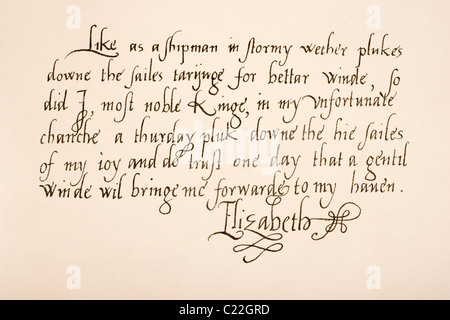 Like as a shipman in stormy wether plukes
downe the sailes tarijnge for bettar winde, so
did I, most noble Kinge, in my vnfortunate
chanche a thurday pluk downe the hie sailes
of my ioy and de trust one day that a gentil
winde wil bringe me forwarde to my hauen.
Elizabeth
alamy
Image ID: C22GRD
www.alamy.com